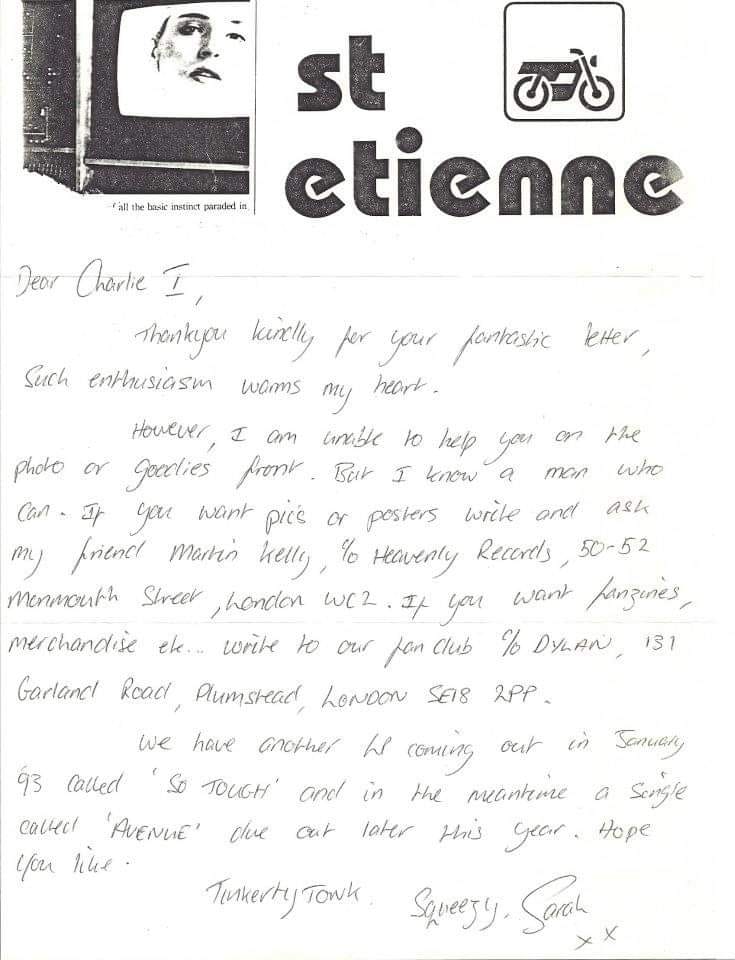 st
etienne
all the basic instinct paraded in
Dear Charlie I,
Thankyou kindly for your fantastic letter,
Such enthusiasm warms my heart.
However, I am unable to help you on the
photo or goodies front. But I know a man who
can. If you want pics or posters write and ask
my friend Martin Kelly, c/o Heavenly Records, 50-52
Monmouth Street, London WC2. If you want fanzines,
merchandise etc... write to our fan club c/o DYLAN, 131
Garland Road, Plumstead, LONDON SE18 2PP.
We have another LP coming out in January
'93 called 'SO TOUGH' and in the meantime a single
called 'AVENUE' due out later this year. Hope
you like.
Tinkerty Tonk.
Squeezy, Sarah
x x